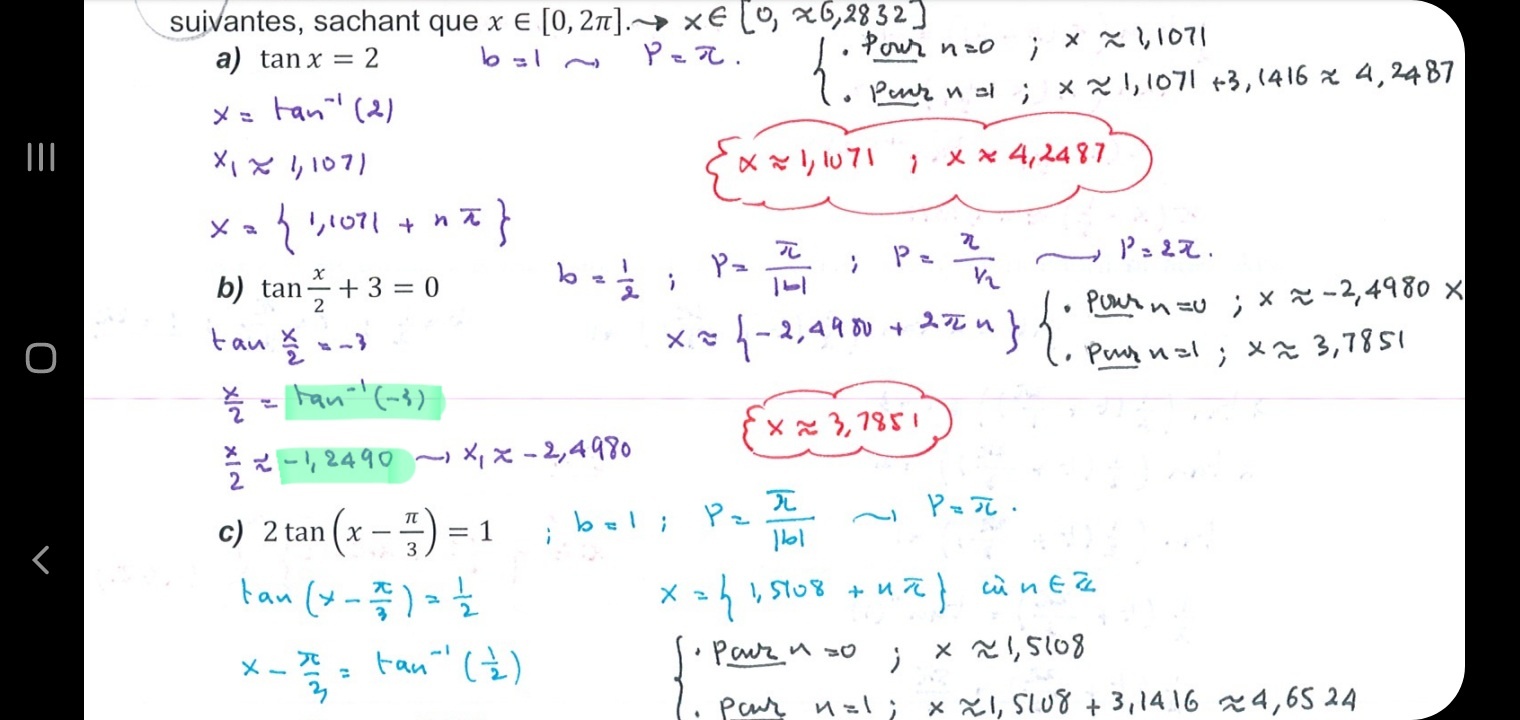 suivantes, sachant que x ∈ [0, 2π]. → x ∈ [0, ≈6,2832]
a) tan x = 2
b = 1 ⤳ P = π.
{ • Pour n=0 ; x ≈ 1,1071
• Pour n=1 ; x ≈ 1,1071 +3,1416 ≈ 4,2487
x = tan⁻¹(2)
x₁ ≈ 1,1071
{ x ≈ 1,1071 ; x ≈ 4,2487
x = { 1,1071 + nπ }
b) tan x/2 + 3 = 0
b = 1/2 ; P = π/|b| ; P = π/½ ⤳ P = 2π.
tan x/2 = -3
x ≈ {-2,4980 + 2πn}
{ • Pour n=0 ; x ≈ -2,4980 ×
• Pour n=1 ; x ≈ 3,7851
x/2 = tan⁻¹(-3)
{ x ≈ 3,7851
x/2 ≈ -1,2490 ⤳ x₁ ≈ -2,4980
c) 2 tan (x − π/3) = 1
; b = 1 ; P = π/|b| ⤳ P = π.
tan (x − π/3) = 1/2
x = { 1,5108 + nπ } où n ∈ ℤ
x − π/3 = tan⁻¹ (1/2)
{ • Pour n=0 ; x ≈ 1,5108
• Pour n=1 ; x ≈ 1,5108 + 3,1416 ≈ 4,6524